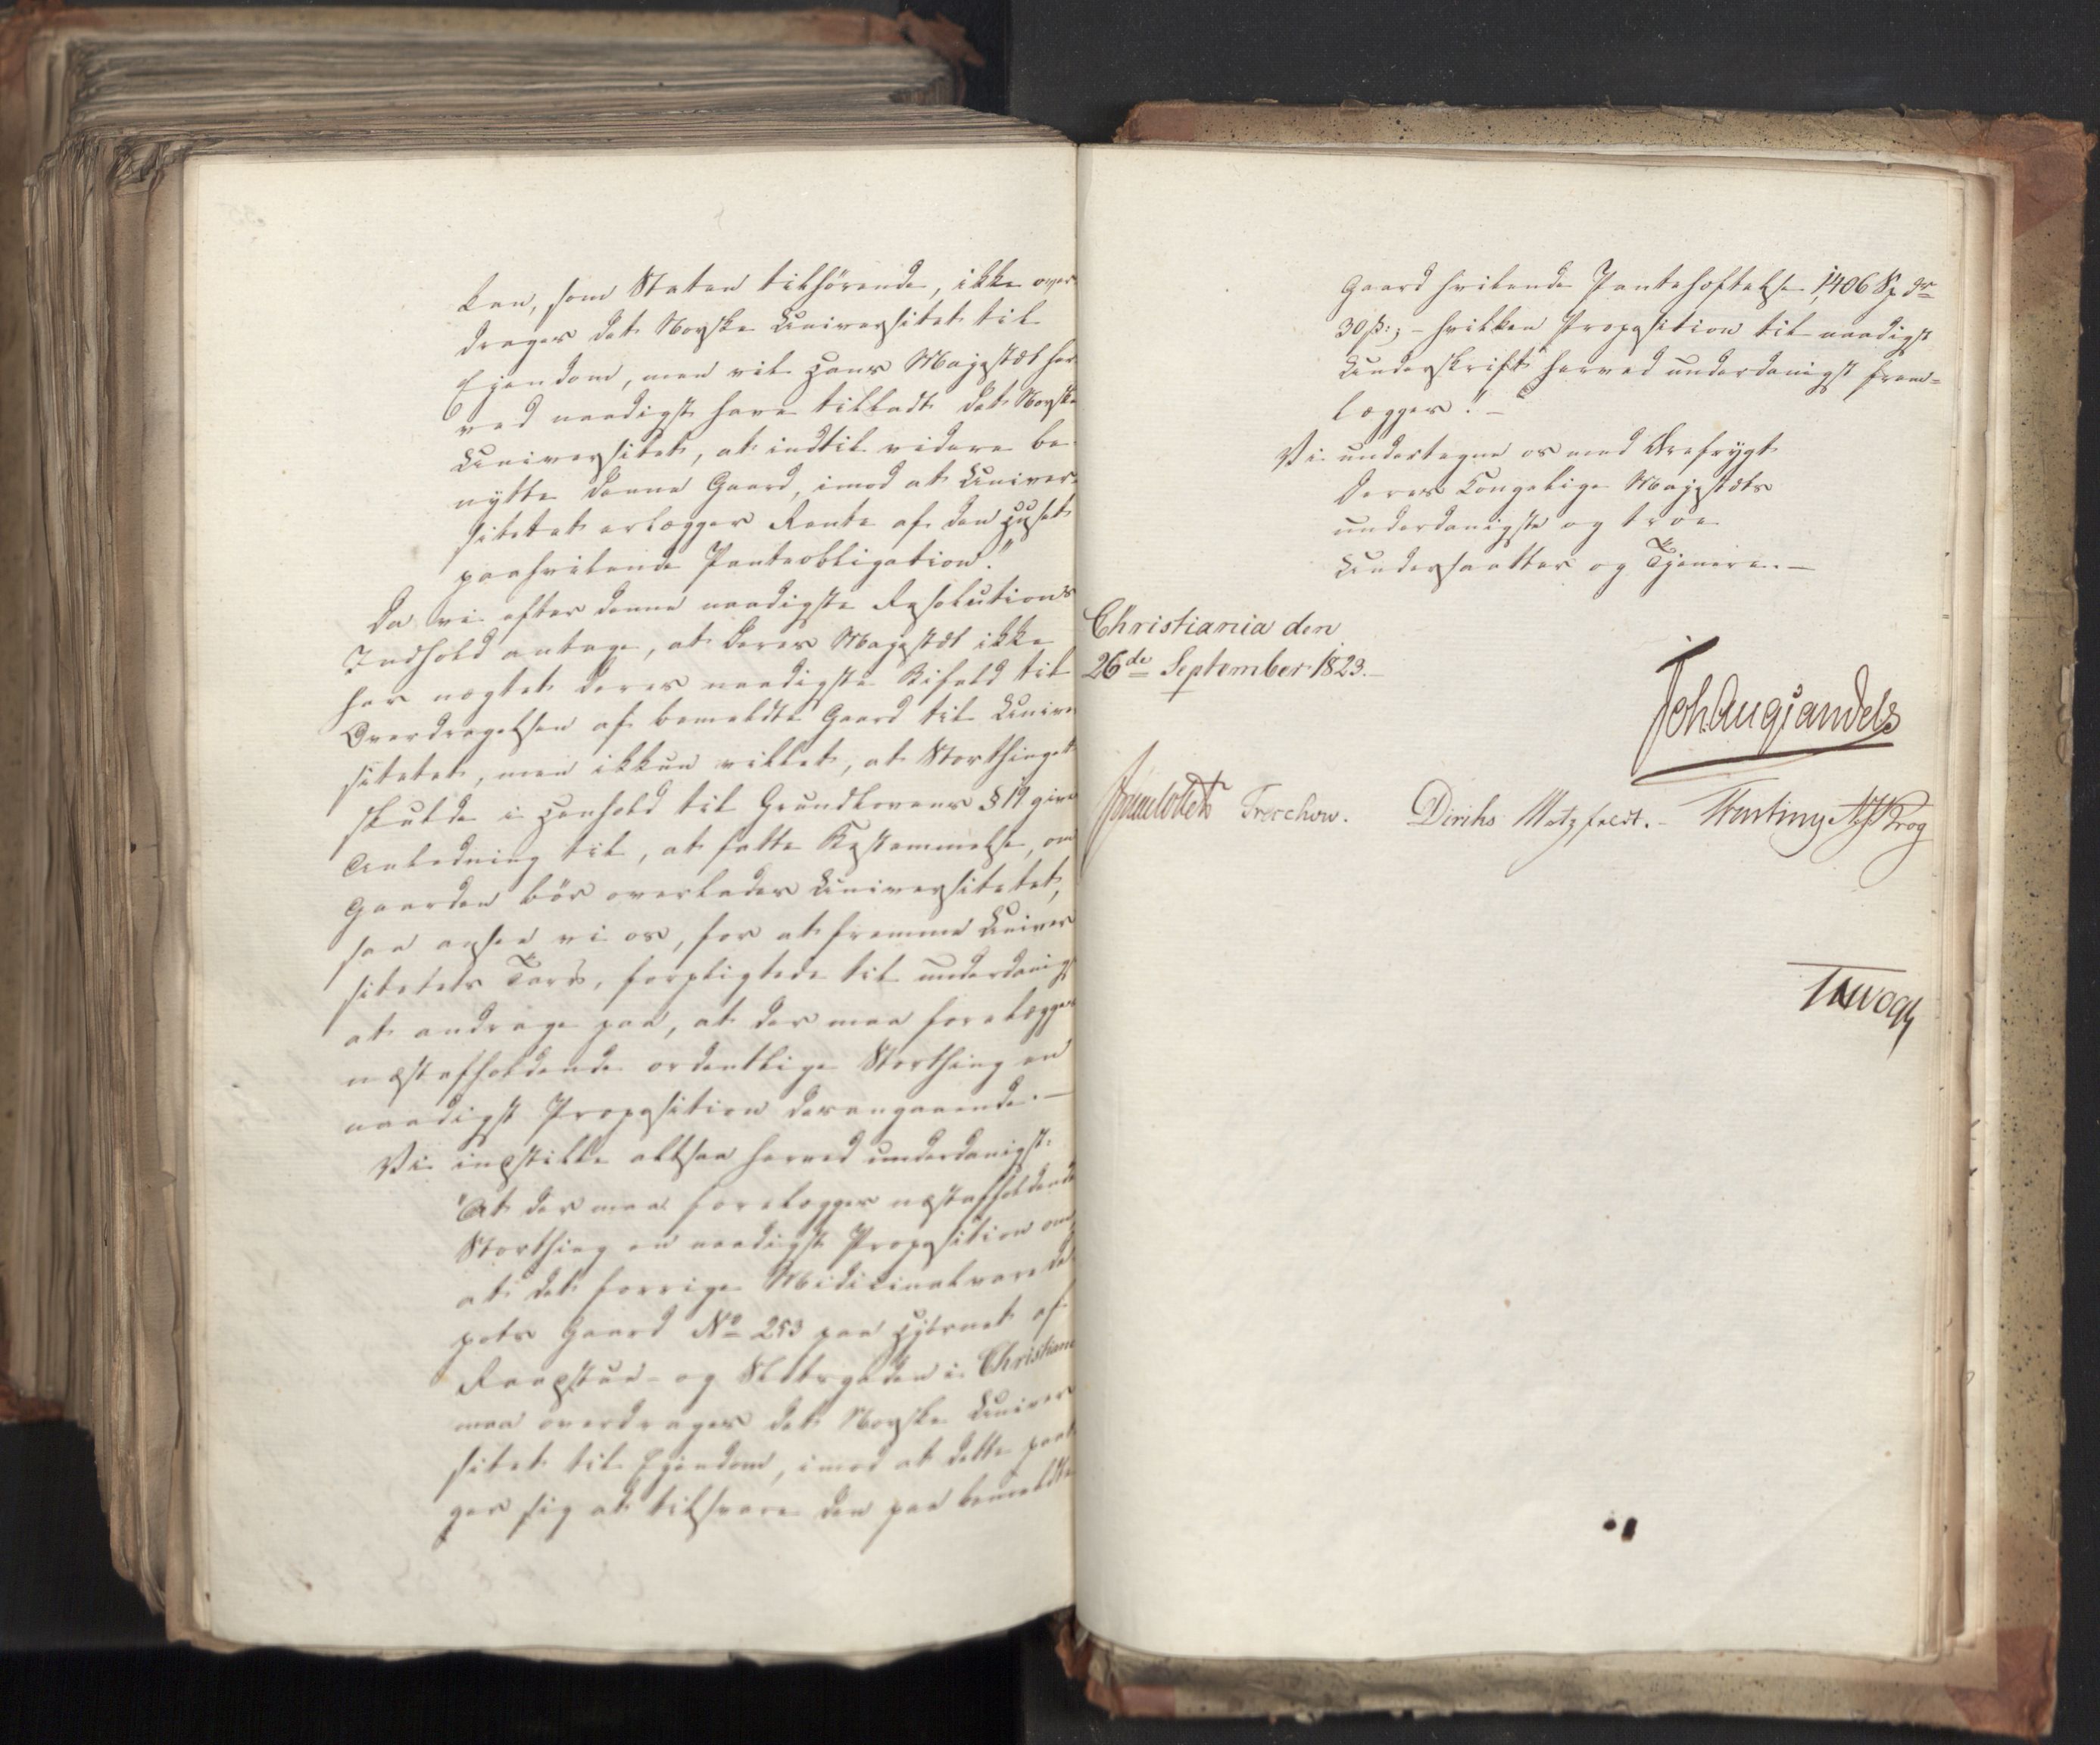 kan, som Staten tilhørende, ikke over
drages det Norske Universitet til
Ejendom, men vil Hans Majestæt her
ved naadigst have tilladt det Norske
Universitet, at indtil videre be
nytte denne Gaard, imod at Univer
sitetet erlægger Rente af den Huset
paahvilende Panteobligation."
Da vi efter denne naadigste Resolutions
Indhold antage, at Deres Majestæt ikke
har nægtet Deres naadigste Bifald til
Overdragelsen af bemeldte Gaard til Univer
sitetet, men ikkun villet, at Storthinget
skulde i Henhold til Grundlovens § 19 give
Anledning til, at fatte Bestemmelse, om
Gaarden bör overlades Universitetet,
saa ansee vi os, for at fremme Univer
sitetets Tarv, forpligtede til underdanigst
at andrage paa, at der maa forelægges
næstafholdende ordentlige Storthing en
naadigst Proposition derangaaende. —
Vi indstille altsaa herved underdanigst:
"At der maa forelægges næstafholdende
Storthing en naadigst Proposition om,
at det forrige Medicinalvarede
pots Gaard No 253 paa Hjörnet af
Raadstue- og Slotsgaden i Christiania
maa overdrages det Norske Univer
sitet til Ejendom, imod at dette paata
ger sig at tilsvare den paa bemeldte
Gaard hvilende Pantehæftelse, 1406 Sp dr
30 ß:; - hvilken Proposition til naadigst
Underskrift herved underdanigst frem=
lægges." —
Vi undertegne os med Ærefrygt
Deres Kongelige Majestæts
underdanigste og troe
Undersaatter og Tjenere. —
Christiania den
26de September 1823. —
Joh Aug Sandels
Sommerfeldt Treschow. Diriks Motzfeldt. - Fasting Krog
J H Vogt